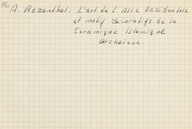 A. Rosenthal: L'art de l'Asie Occidentale
et motif decoratifs de la
Ceramique Islamique
Archaique.